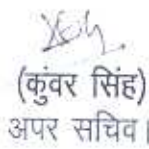 (कुंवर सिंह)
अपर सचिव।